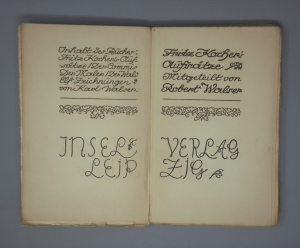 Inhalt der Bücher:
Fritz Kocher's Auf-
sätze / Der Commis
Der Maler / Der Wald
Elf Zeichnungen
von Karl Walser
INSEL
LEIP
Fritz Kocher's
Aufsätze
Mitgeteilt von
Robert Walser
VERLAG
ZIG